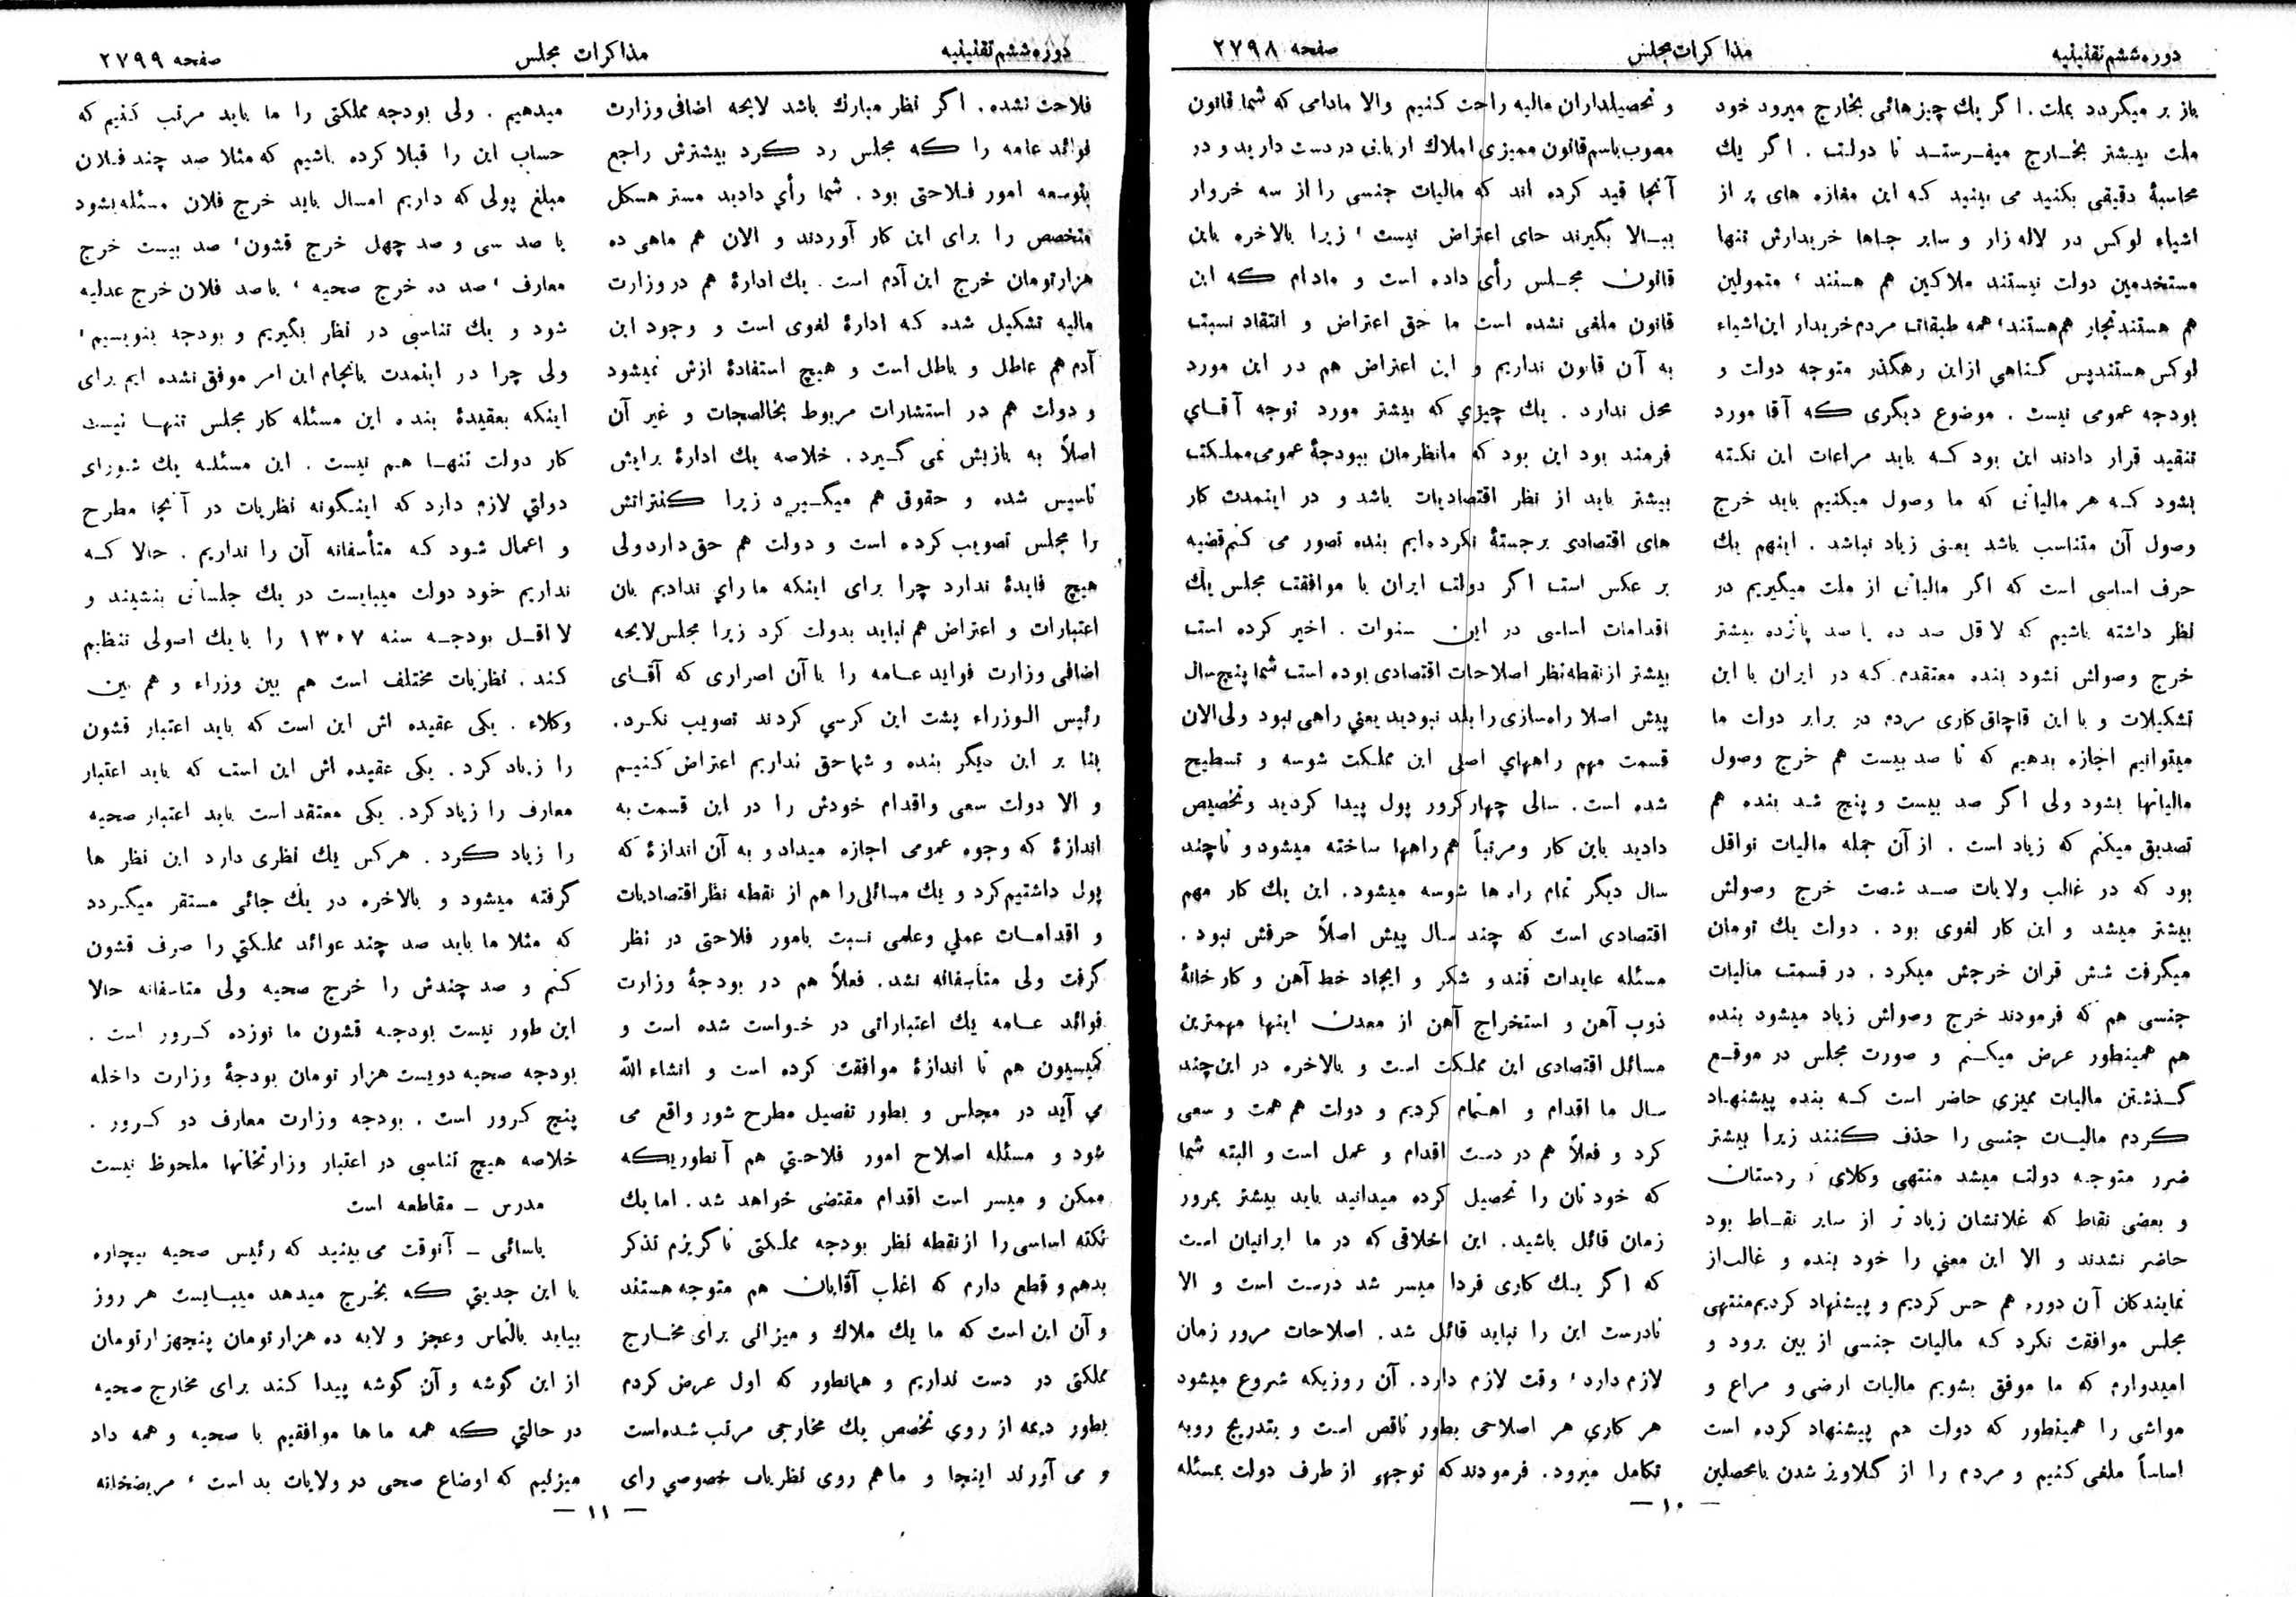 دوره ششم تقنینیه
مذاکرات مجلس
صفحه ۲۷۹۸
باز بر میگردد بملت . اگر یك چیزهائی بخارج میرود خود
ملت بیشتر بخارج میفرستد تا دولت . اگر یك
محاسبهٔ دقیقی بکنید می بینید که این مغازه های پر از
اشیاء لوکس در لاله زار و سایر جاها خریدارش تنها
مستخدمین دولت نیستند ملاکین هم هستند ، متمولین
هم هستند تجار هم هستند ، همه طبقات مردم خریدار این اشیاء
لوکس هستند پس گناهی از این رهگذر متوجه دولت و
بودجه عمومی نیست . موضوع دیگری که آقا مورد
تنقید قرار دادند این بود که باید مراعات این نکته
بشود که هر مالیاتی که ما وصول میکنیم باید خرج
وصول آن متناسب باشد یعنی زیاد نباشد . اینهم یك
حرف اساسی است که اگر مالیاتی از ملت میگیریم در
نظر داشته باشیم که لاقل صد ده یا صد پانزده بیشتر
خرج وصولش نشود بنده معتقدم که در ایران با این
تشکیلات و با این قاچاق کاری مردم در برابر دولت ما
میتوانیم اجازه بدهیم که تا صد بیست هم خرج وصول
مالیاتها بشود ولی اگر صد بیست و پنج شد بنده هم
تصدیق میکنم که زیاد است . از آن جمله مالیات نواقل
بود که در غالب ولایات صد شصت خرج وصولش
بیشتر میشد و این کار لغوی بود . دولت یك تومان
میگرفت شش قران خرجش میکرد . در قسمت مالیات
جنسی هم که فرمودند خرج وصولش زیاد میشود بنده
هم همینطور عرض میکنم و صورت مجلس در موقع
گذشتن مالیات ممیزی حاضر است که بنده پیشنهاد
کردم مالیات جنسی را حذف کنند زیرا بیشتر
ضرر متوجه دولت میشد منتهی وکلای کردستان
و بعضی نقاط که غلاتشان زیادتر از سایر نقاط بود
حاضر نشدند و الا این معنی را خود بنده و غالب از
نمایندکان آن دوره هم حس کردیم و پیشنهاد کردیم منتهی
مجلس موافقت نکرد که مالیات جنسی از بین برود و
امیدوارم که ما موفق بشویم مالیات ارضی و مراع و
مواشی را همینطور که دولت هم پیشنهاد کرده است
اساساً ملغی کنیم و مردم را از گلاویز شدن با محصلین
و تحصیلداران مالیه راحت کنیم والا مادامی که شما قانون
مصوب باسم قانون ممیزی املاك اربابی در دست دارید و در
آنجا قید کرده اند که مالیات جنسی را از سه خروار
ببالا بگیرند جای اعتراض نیست ، زیرا بالاخره باین
قانون مجلس رأی داده است و مادام که این
قانون ملغی نشده است ما حق اعتراض و انتقاد نسبت
به آن قانون نداریم و این اعتراض هم در این مورد
محل ندارد . یك چیزی که بیشتر مورد توجه آقای
فرمند بود این بود که مانظرمان ببودجهٔ عمومی مملکت
بیشتر باید از نظر اقتصادیات باشد و در اینمدت کار
های اقتصادی برجستهٔ نکرده ایم بنده تصور می کنم قضیه
بر عکس است اگر دولت ایران با موافقت مجلس یك
اقدامات اساسی در این سنوات . اخیر کرده است
بیشتر از نقطه نظر اصلاحات اقتصادی بوده است شما پنچ سال
پیش اصلا راه سازی را بلد نبودید یعنی راهی نبود ولی الان
قسمت مهم راههای اصلی این مملکت شوسه و تسطیح
شده است . سالی چهار کرور پول پیدا کردید و تخصیص
دادید باین کار و مرتباً هم راهها ساخته میشود و تا چند
سال دیگر تمام راه ها شوسه میشود . این یك کار مهم
اقتصادی است که چند سال پیش اصلاً حرفش نبود .
مسئله عایدات قند و شکر و ایجاد خط آهن و کارخانهٔ
ذوب آهن و استخراج آهن از معدن اینها مهمترین
مسائل اقتصادی این مملکت است و بالاخره در این چند
سال ما اقدام و اهتمام کردیم و دولت هم همت و سعی
کرد و فعلاً هم در دست اقدام و عمل است و البته شما
که خودتان را تحصیل کرده میدانید باید بیشتر بمرور
زمان قائل باشید . این اخلاقی که در ما ایرانیان است
که اگر یك کاری فردا میسر شد درست است و الا
نادرست این را نباید قائل شد . اصلاحات مرور زمان
لازم دارد ، وقت لازم دارد . آن روزیکه شروع میشود
هر کاری هر اصلاحی بطور ناقص است و بتدریج رو به
تکامل میرود . فرمودند که توجهی از طرف دولت بمسئله
— ۱۰ —
دوره ششم تقنینیه
مذاکرات مجلس
صفحه ۲۷۹۹
فلاحت نشده . اگر نظر مبارك باشد لایحه اضافی وزارت
فوائد عامه را که مجلس رد کرد بیشترش راجع
بتوسعه امور فلاحتی بود . شما رأی دادید مستر هسکل
متخصص را برای این کار آوردند و الان هم ماهی ده
هزار تومان خرج این آدم است . یك ادارهٔ هم در وزارت
مالیه تشکیل شده که ادارهٔ لغوی است و وجود این
آدم هم عاطل و باطل است و هیچ استفادهٔ ازش نمیشود
و دولت هم در استشارات مربوط بخالصجات و غیر آن
اصلاً به بازیش نمی گیرد . خلاصه یك ادارهٔ برایش
تاسیس شده و حقوق هم میگیرد زیرا کنتراتش
را مجلس تصویب کرده است و دولت هم حق دارد ولی
هیچ فایدهٔ ندارد چرا برای اینکه ما رای ندادیم بان
اعتبارات و اعتراض هم نباید بدولت کرد زیرا مجلس لایحه
اضافی وزارت فواید عامه را با آن اصراری که آقای
رئیس الوزراء پشت این کرسی کردند تصویب نکرد .
بنا بر این دیگر بنده و شما حق نداریم اعتراض کنیم
و الا دولت سعی و اقدام خودش را در این قسمت به
اندازهٔ که وجوه عمومی اجازه میداد و به آن اندازهٔ که
پول داشتیم کرد و یك مسائلی را هم از نقطه نظر اقتصادیات
و اقدامات عملی و علمی نسبت بامور فلاحتی در نظر
گرفت ولی متأسفانه نشد . فعلاً هم در بودجهٔ وزارت
فوائد عامه یك اعتباراتی در خواست شده است و
کمیسیون هم تا اندازهٔ موافقت کرده است و انشاء الله
می آید در مجلس و بطور تفصیل مطرح شور واقع می
شود و مسئله اصلاح امور فلاحتی هم آنطوریکه
ممکن و میسر است اقدام مقتضی خواهد شد . اما یك
نکته اساسی را از نقطه نظر بودجه مملکتی ناگریزم تذکر
بدهم و قطع دارم که اغلب آقایان هم متوجه هستند
و آن این است که ما یك ملاك و میزانی برای مخارج
مملکتی در دست نداریم و همانطور که اول عرض کردم
بطور دیمه از روی تخصص یك مخارجی مرتب شده است
و می آورند اینجا و ما هم روی نظریات خصوصی رای
میدهیم . ولی بودجه مملکتی را ما باید مرتب کنیم که
حساب این را قبلا کرده باشیم که مثلا صد چند فلان
مبلغ پولی که داریم امسال باید خرج فلان مسئله بشود
یا صد سی و صد چهل خرج قشون ، صد بیست خرج
معارف ، صد ده خرج صحیه ، یا صد فلان خرج عدلیه
شود و یك تناسبی در نظر بگیریم و بودجه بنویسیم ،
ولی چرا در اینمدت بانجام این امر موفق نشده ایم برای
اینکه بعقیدهٔ بنده این مسئله کار مجلس تنها نیست
کار دولت تنها هم نیست . این مسئله یك شورای
دولتی لازم دارد که اینگونه نظریات در آنجا مطرح
و اعمال شود که متأسفانه آن را نداریم . حالا که
نداریم خود دولت میبایست در یك جلساتی بنشیند و
لا اقل بودجه سنه ۱۳۰۷ را با یك اصولی تنظیم
کند . نظریات مختلف است هم بین وزراء و هم بین
وکلاء . یکی عقیده اش این است که باید اعتبار قشون
را زیاد کرد . یکی عقیده اش این است که باید اعتبار
معارف را زیاد کرد . یکی معتقد است باید اعتبار صحیه
را زیاد کرد . هر کس یك نظری دارد این نظر ها
گرفته میشود و بالاخره در یك جائی مستقر میگردد
که مثلا ما باید صد چند عوائد مملکتی را صرف قشون
کنم و صد چندش را خرج صحیه ولی متاسفانه حالا
این طور نیست بودجه قشون ما نوزده کرور است .
بودجه صحیه دویست هزار تومان بودجهٔ وزارت داخله
پنچ کرور است . بودجه وزارت معارف دو کرور .
خلاصه هیچ تناسبی در اعتبار وزارتخانها ملحوظ نیست
مدرس ـ مقاطعه است
یاسائی ـ آنوقت می بینید که رئیس صحیه بیچاره
با این جدیتی که بخرج میدهد میبایست هر روز
بیاید بالتماس و عجز و لابه ده هزار تومان پنجهزار تومان
از این گوشه و آن گوشه پیدا کند برای مخارج صحیه
در حالتی که همه ما ها موافقیم با صحیه و همه داد
میزنیم که اوضاع صحی در ولایات بد است ، مریضخانه
— ۱۱ —